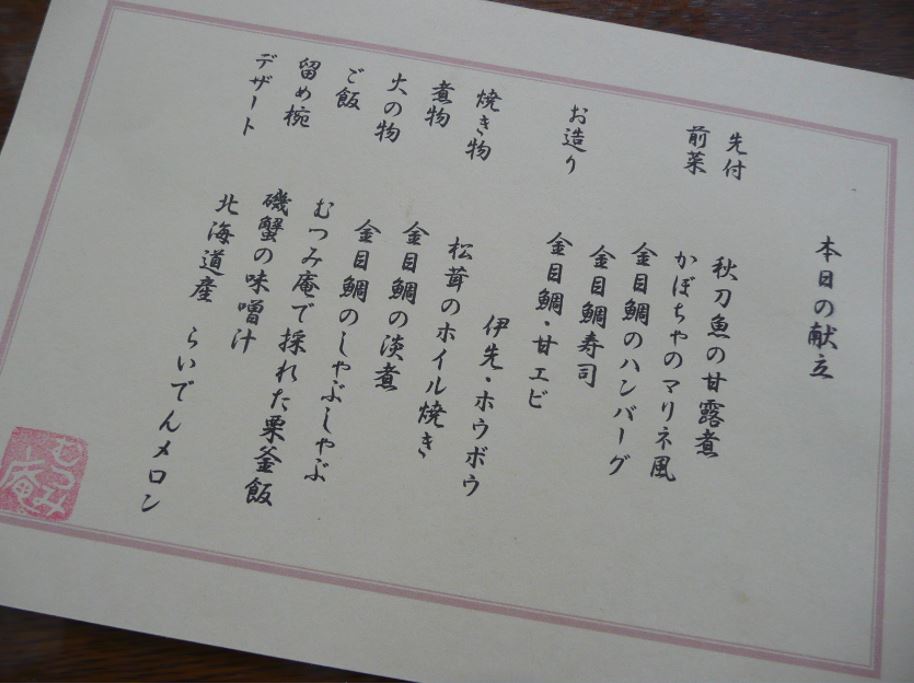 本日の献立
先付 秋刀魚の甘露煮
前菜 かぼちゃのマリネ風
金目鯛のハンバーグ
金目鯛寿司
お造り 金目鯛・甘エビ
伊先・ホウボウ
焼き物 松茸のホイル焼き
煮物 金目鯛の淡煮
火の物 金目鯛のしゃぶしゃぶ
ご飯 むつみ庵で採れた栗釜飯
留め椀 磯蟹の味噌汁
デザート 北海道産 らいでんメロン
むつみ庵